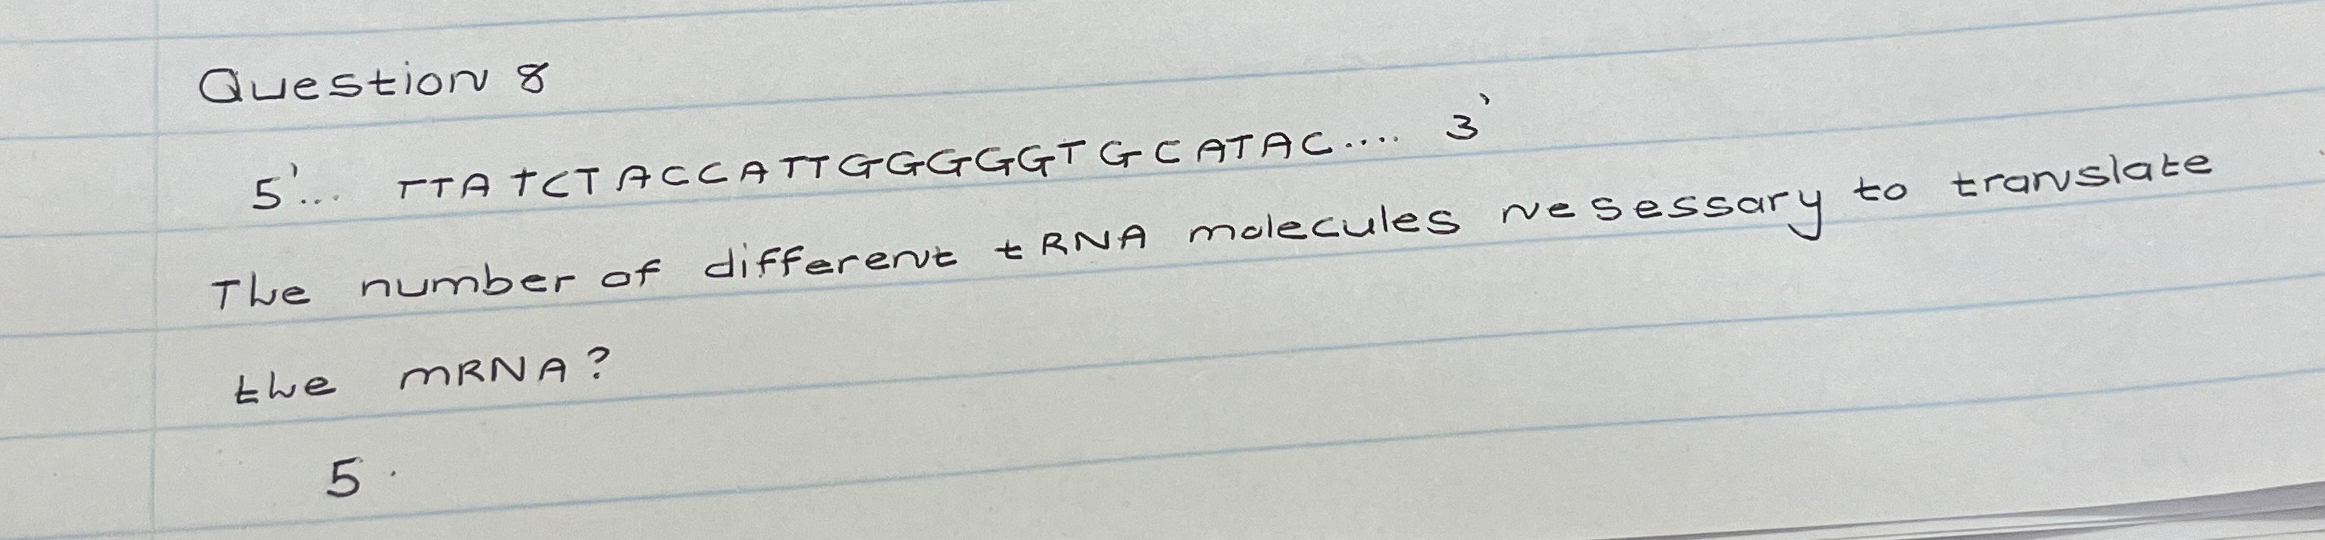 Question 8
5'... TTATCTACCATTGGGGGTGCATAC.... 3'
The number of different tRNA molecules nesessary to translate
the mRNA?
5.